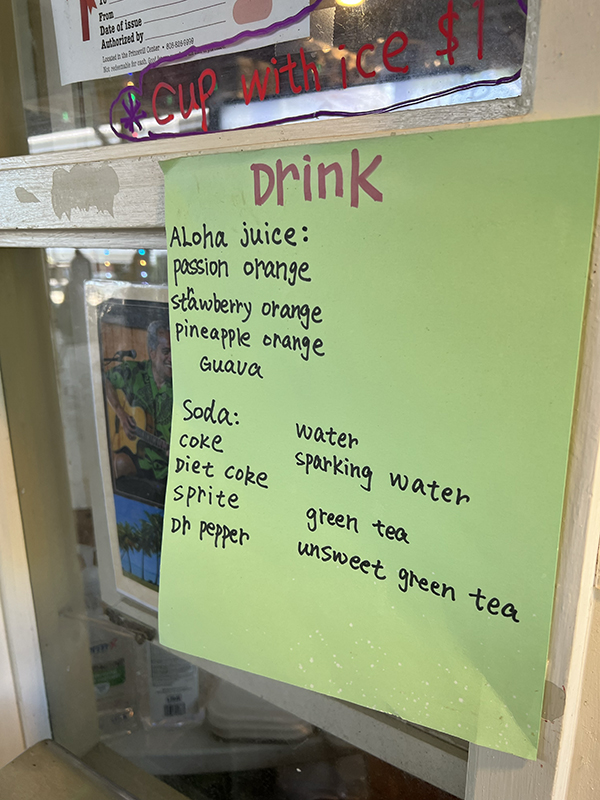 To
From
Date of issue
Authorized by
Located in the Princeville Center • 808-826-6998
Not redeemable for cash.
* cup with ice $1
Drink
ALoha juice:
passion orange
strawberry orange
pineapple orange
Guava
Soda:
coke
Diet coke
sprite
Dr pepper
water
sparking water
green tea
unsweet green tea